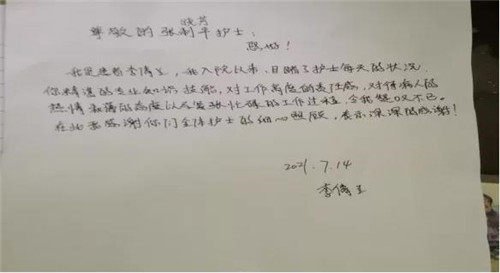 晓芳
尊敬的张利平护士:
您好!
我是患者李 ,我入院以来,目睹了护士每天的状况,
你精湛的专业知识技能,对工作高度的责任感,对待病人的
热情和蔼的态度以及紧张忙碌的工作过程,令我赞叹不已。
在此感谢你们全体护士的细心照顾,表示深深的感谢!
2021.7.14
李